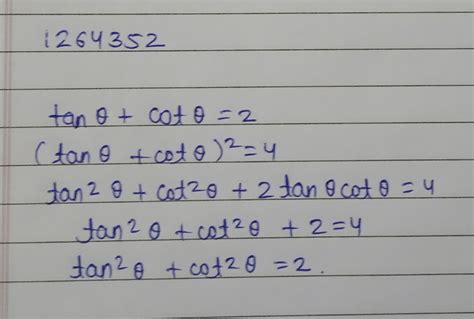 1264352
tan θ + cot θ = 2
(tan θ + cot θ)² = 4
tan² θ + cot² θ + 2 tan θ cot θ = 4
tan² θ + cot² θ + 2 = 4
tan² θ + cot² θ = 2.